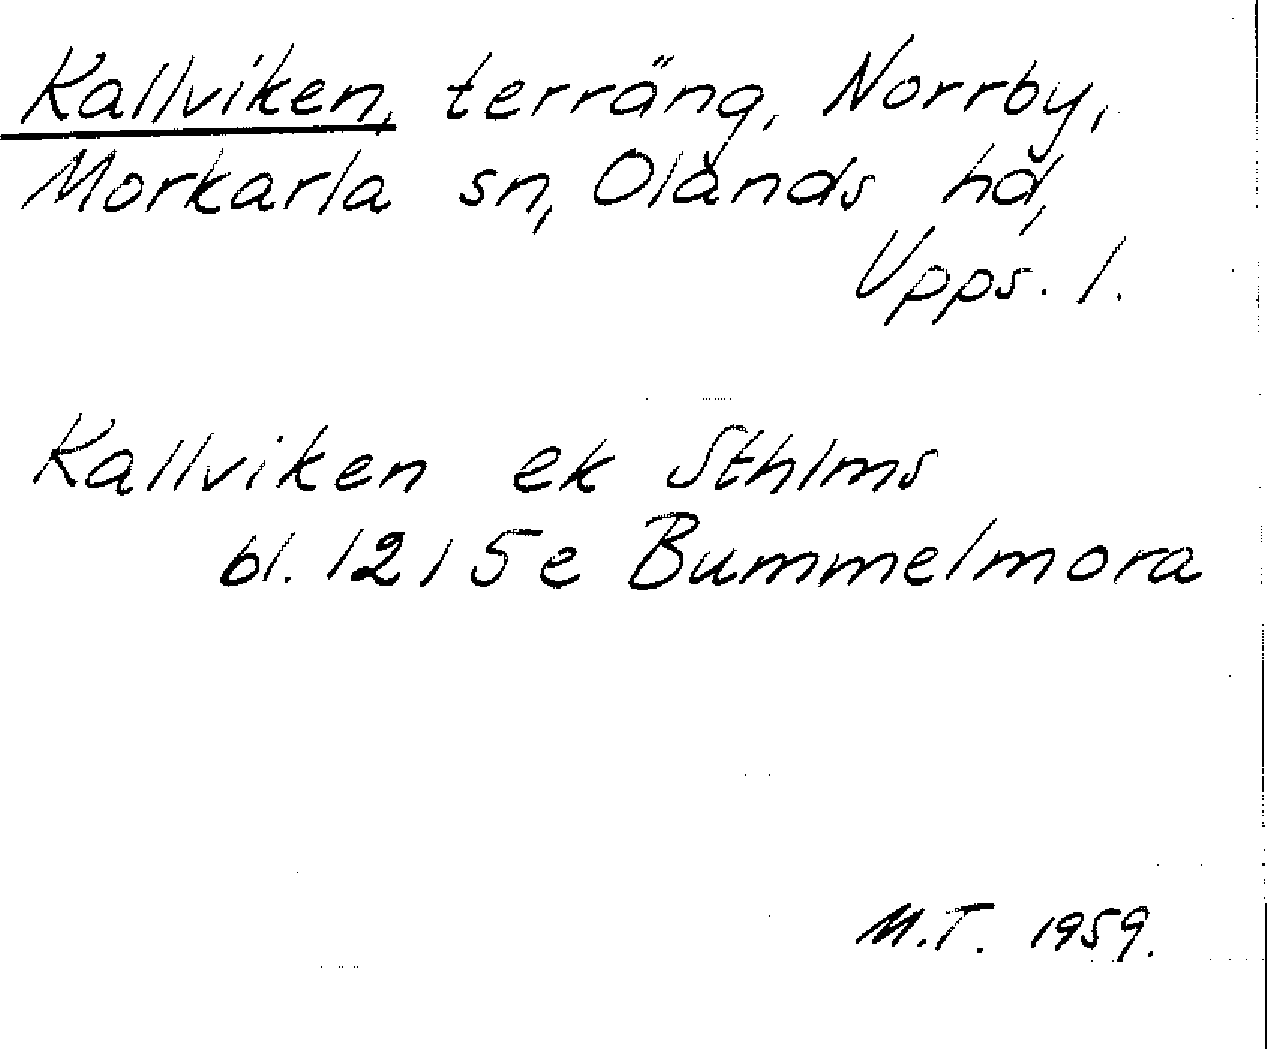 Kallviken, terräng, Norrby,
Morkarla sn, Olands hd,
Upps. l.
Kallviken ek Sthlms
bl. 12 I 5e Bummelmora
M.T. 1959.